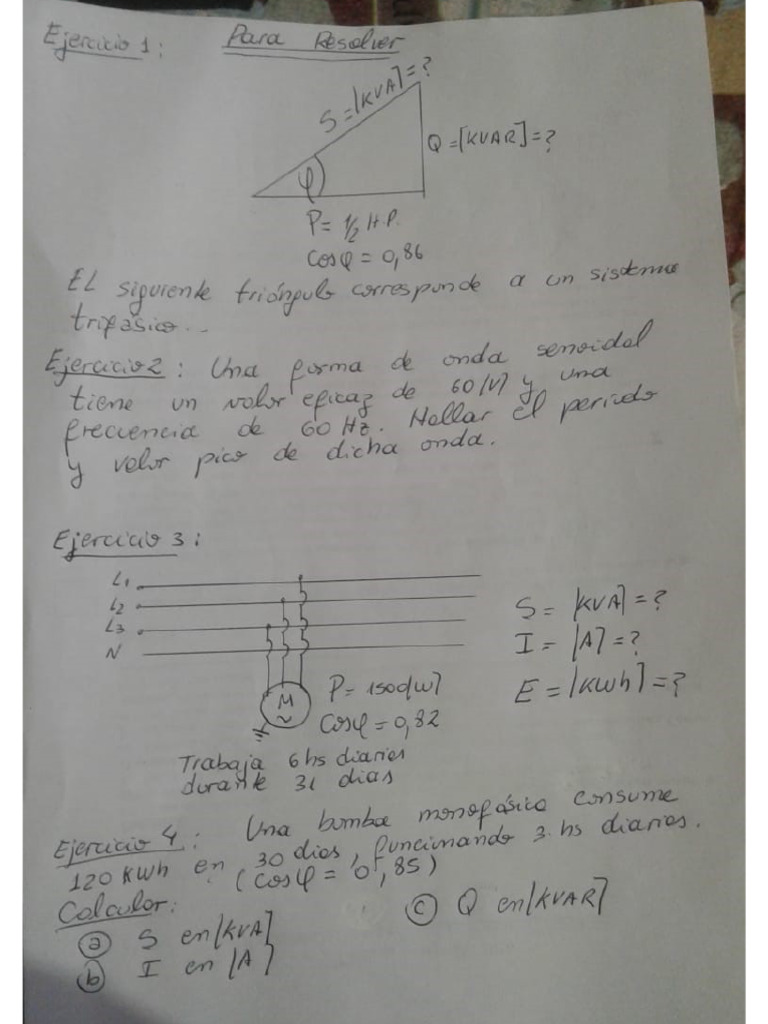 Ejercicio 1: Para Resolver
S=[KVA]=?
Q=[KVAR]=?
φ
P= 1/2 H.P.
cosφ = 0,86
EL siguiente triángulo corresponde a un sistema
trifásico...
Ejercicio 2: Una forma de onda senoidal
tiene un valor eficaz de 60[V] y una
frecuencia de 60 Hz. Hallar el período
y valor pico de dicha onda.
Ejercicio 3:
L1
L2
L3
N
M
~
P= 1500[W]
cosφ = 0,82
S= [KVA]=?
I= [A]=?
E= [KWh]=?
Trabaja 6 hs diarias
durante 31 dias
Ejercicio 4: Una bomba monofásica consume
120 KWh en 30 dias, funcionando 3 hs diarias.
(cosφ = 0,85)
Calcular:
a S en[KVA]
b I en [A]
c Q en[KVAR]